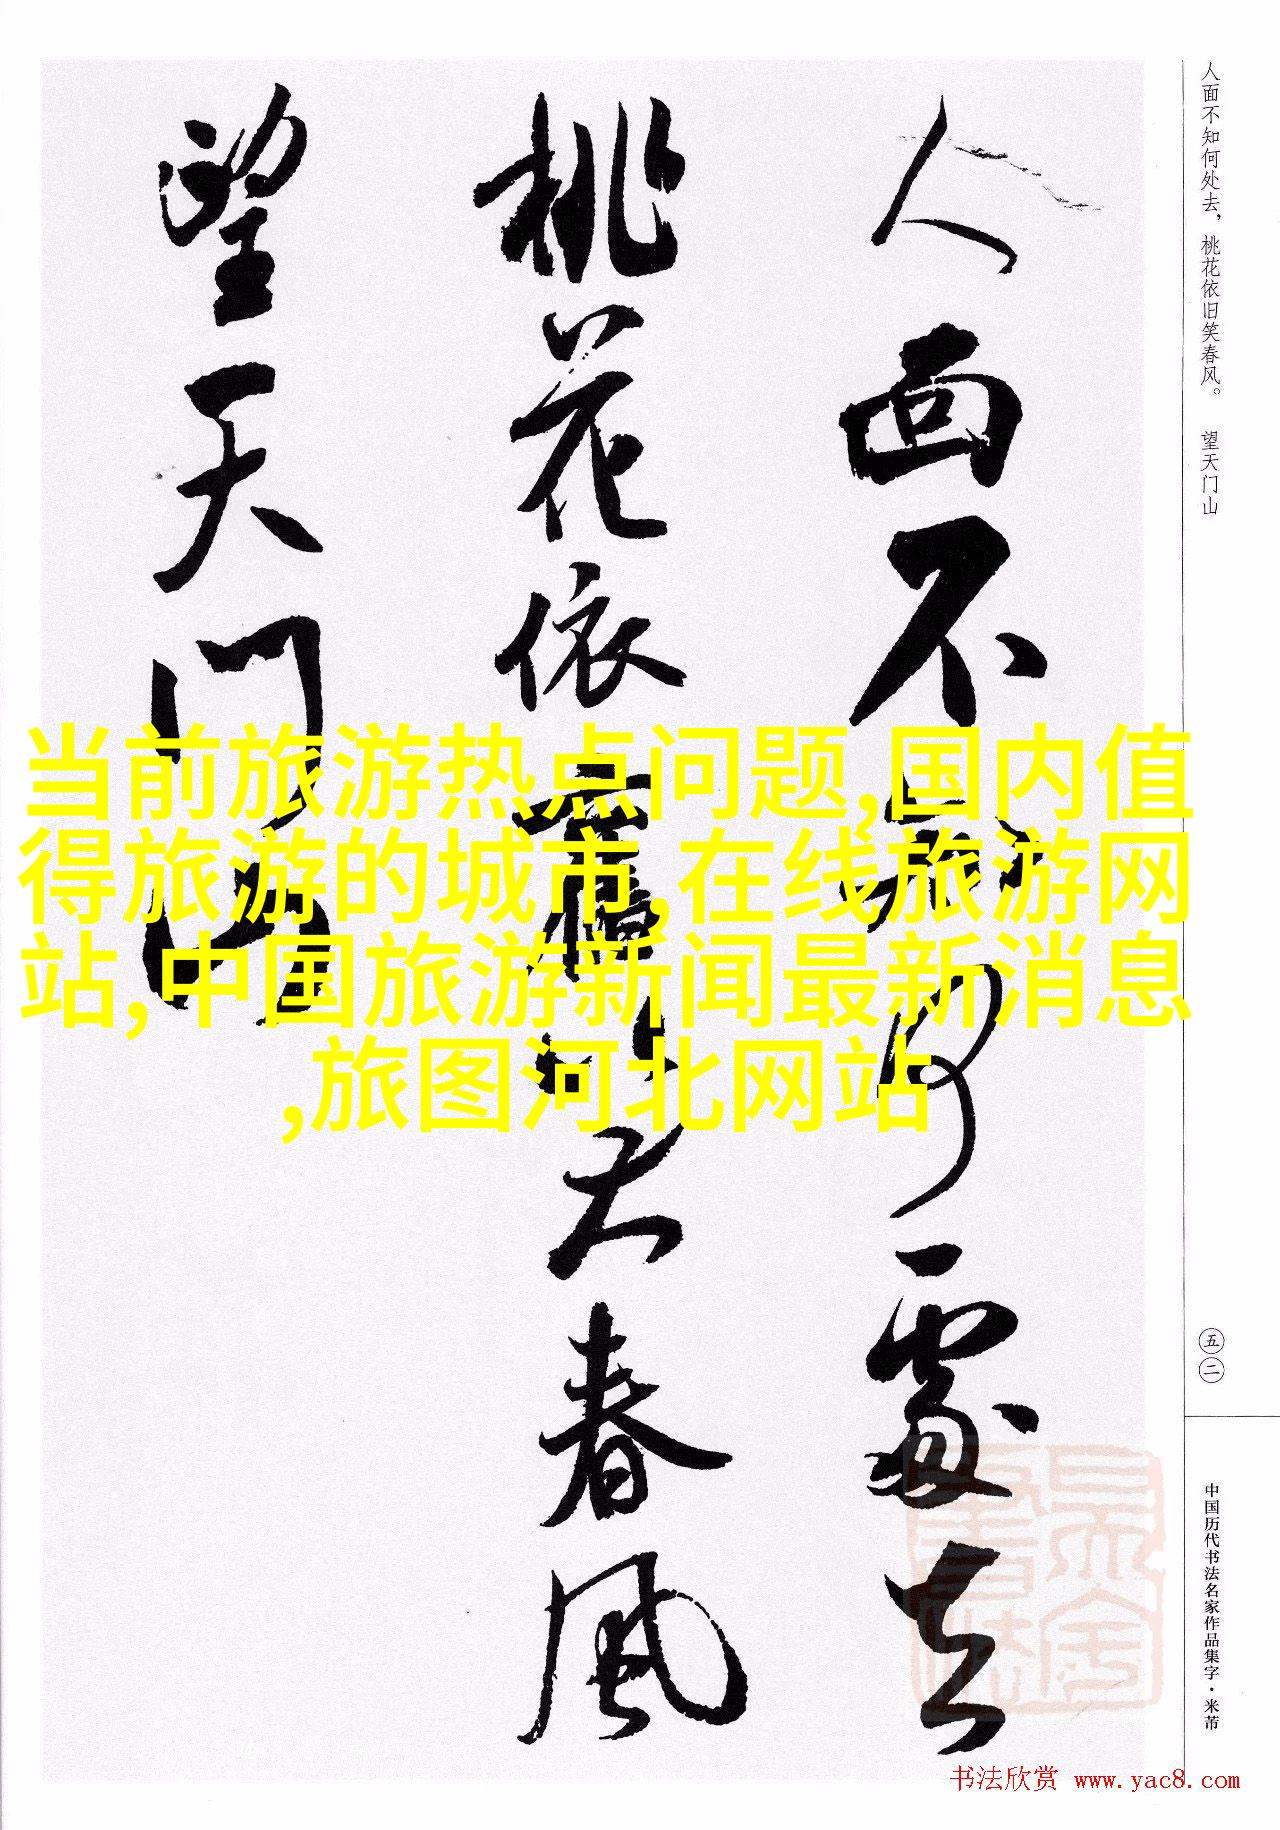 人面不知何处去，桃花依旧笑春风。 望天门山
人面不知何處去
桃花依舊笑春風
望天门山
当前旅游热点问题,国内值
得旅游的城市,在线旅游网
站,中国旅游新闻最新消息
,旅图河北网站
五二
中国历代书法名家作品集字·米芾
书法欣赏 www.yac8.com